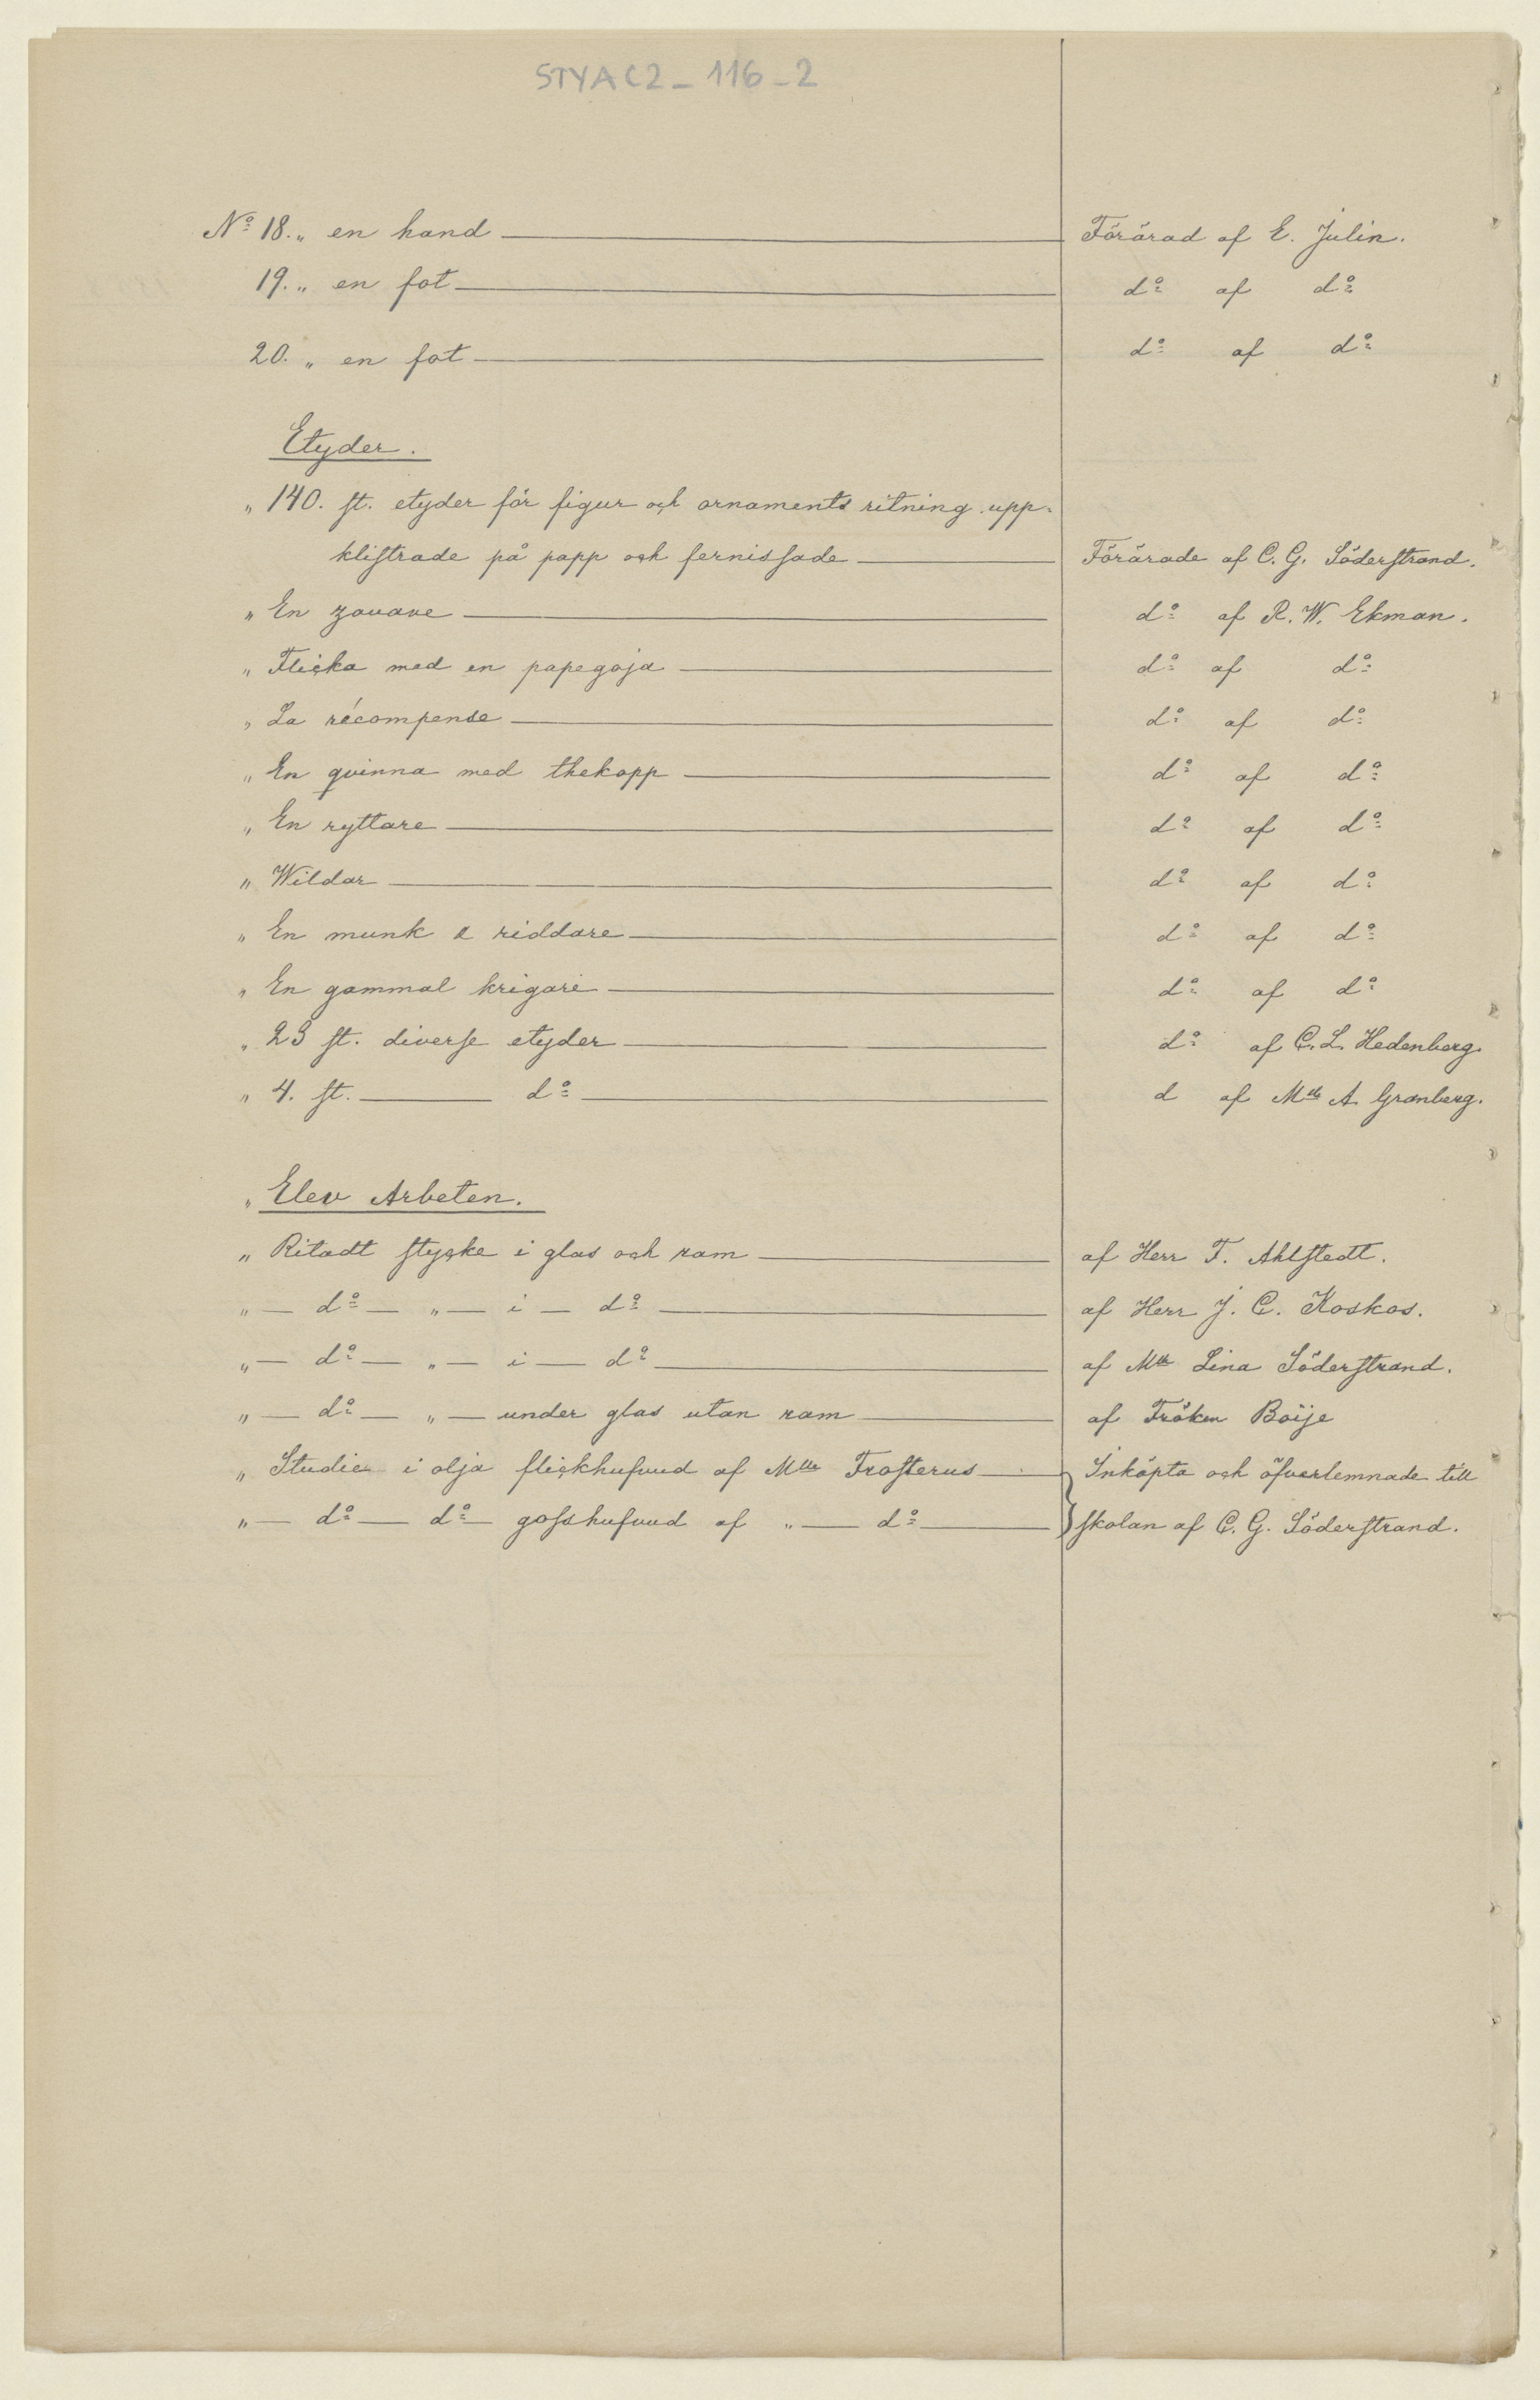 STYAC2_116_2
Nº 18. „ en hand — Förärad af E. Julin.
19. „ en fot — dº af dº
20. „ en fot — dº af dº
Etyder.
„ 140. st. etyder för figur och ornaments ritning upp-
klistrade på papp och fernissade — Förärade af C. G. Söderstrand.
„ En zouave — dº af R. W. Ekman.
„ Flicka med en papegoja — dº af dº
„ La récompense — dº af dº
„ En qvinna med thekopp — dº af dº
„ En ryttare — dº af dº
„ Wildar — dº af dº
„ En munk & riddare — dº af dº
„ En gammal krigare — dº af dº
„ 23 st. diverse etyder — dº af C. L. Hedenberg.
„ 4. st. — dº — d af Mlle A. Granberg.
„ Elev Arbeten.
„ Ritadt stycke i glas och ram — af Herr F. Ahlstedt.
„ — dº — „ — i — dº — af Herr J. C. Koskos.
„ — dº — „ — i — dº — af Mlle Lina Söderstrand.
„ — dº — „ — under glas utan ram — af Fröken Boije
„ Studie i olja flickhufvud af Mlle Frosterus — Inköpta och öfverlemnade till
„ — dº — dº — gosshufvud af „ — dº — skolan af C. G. Söderstrand.